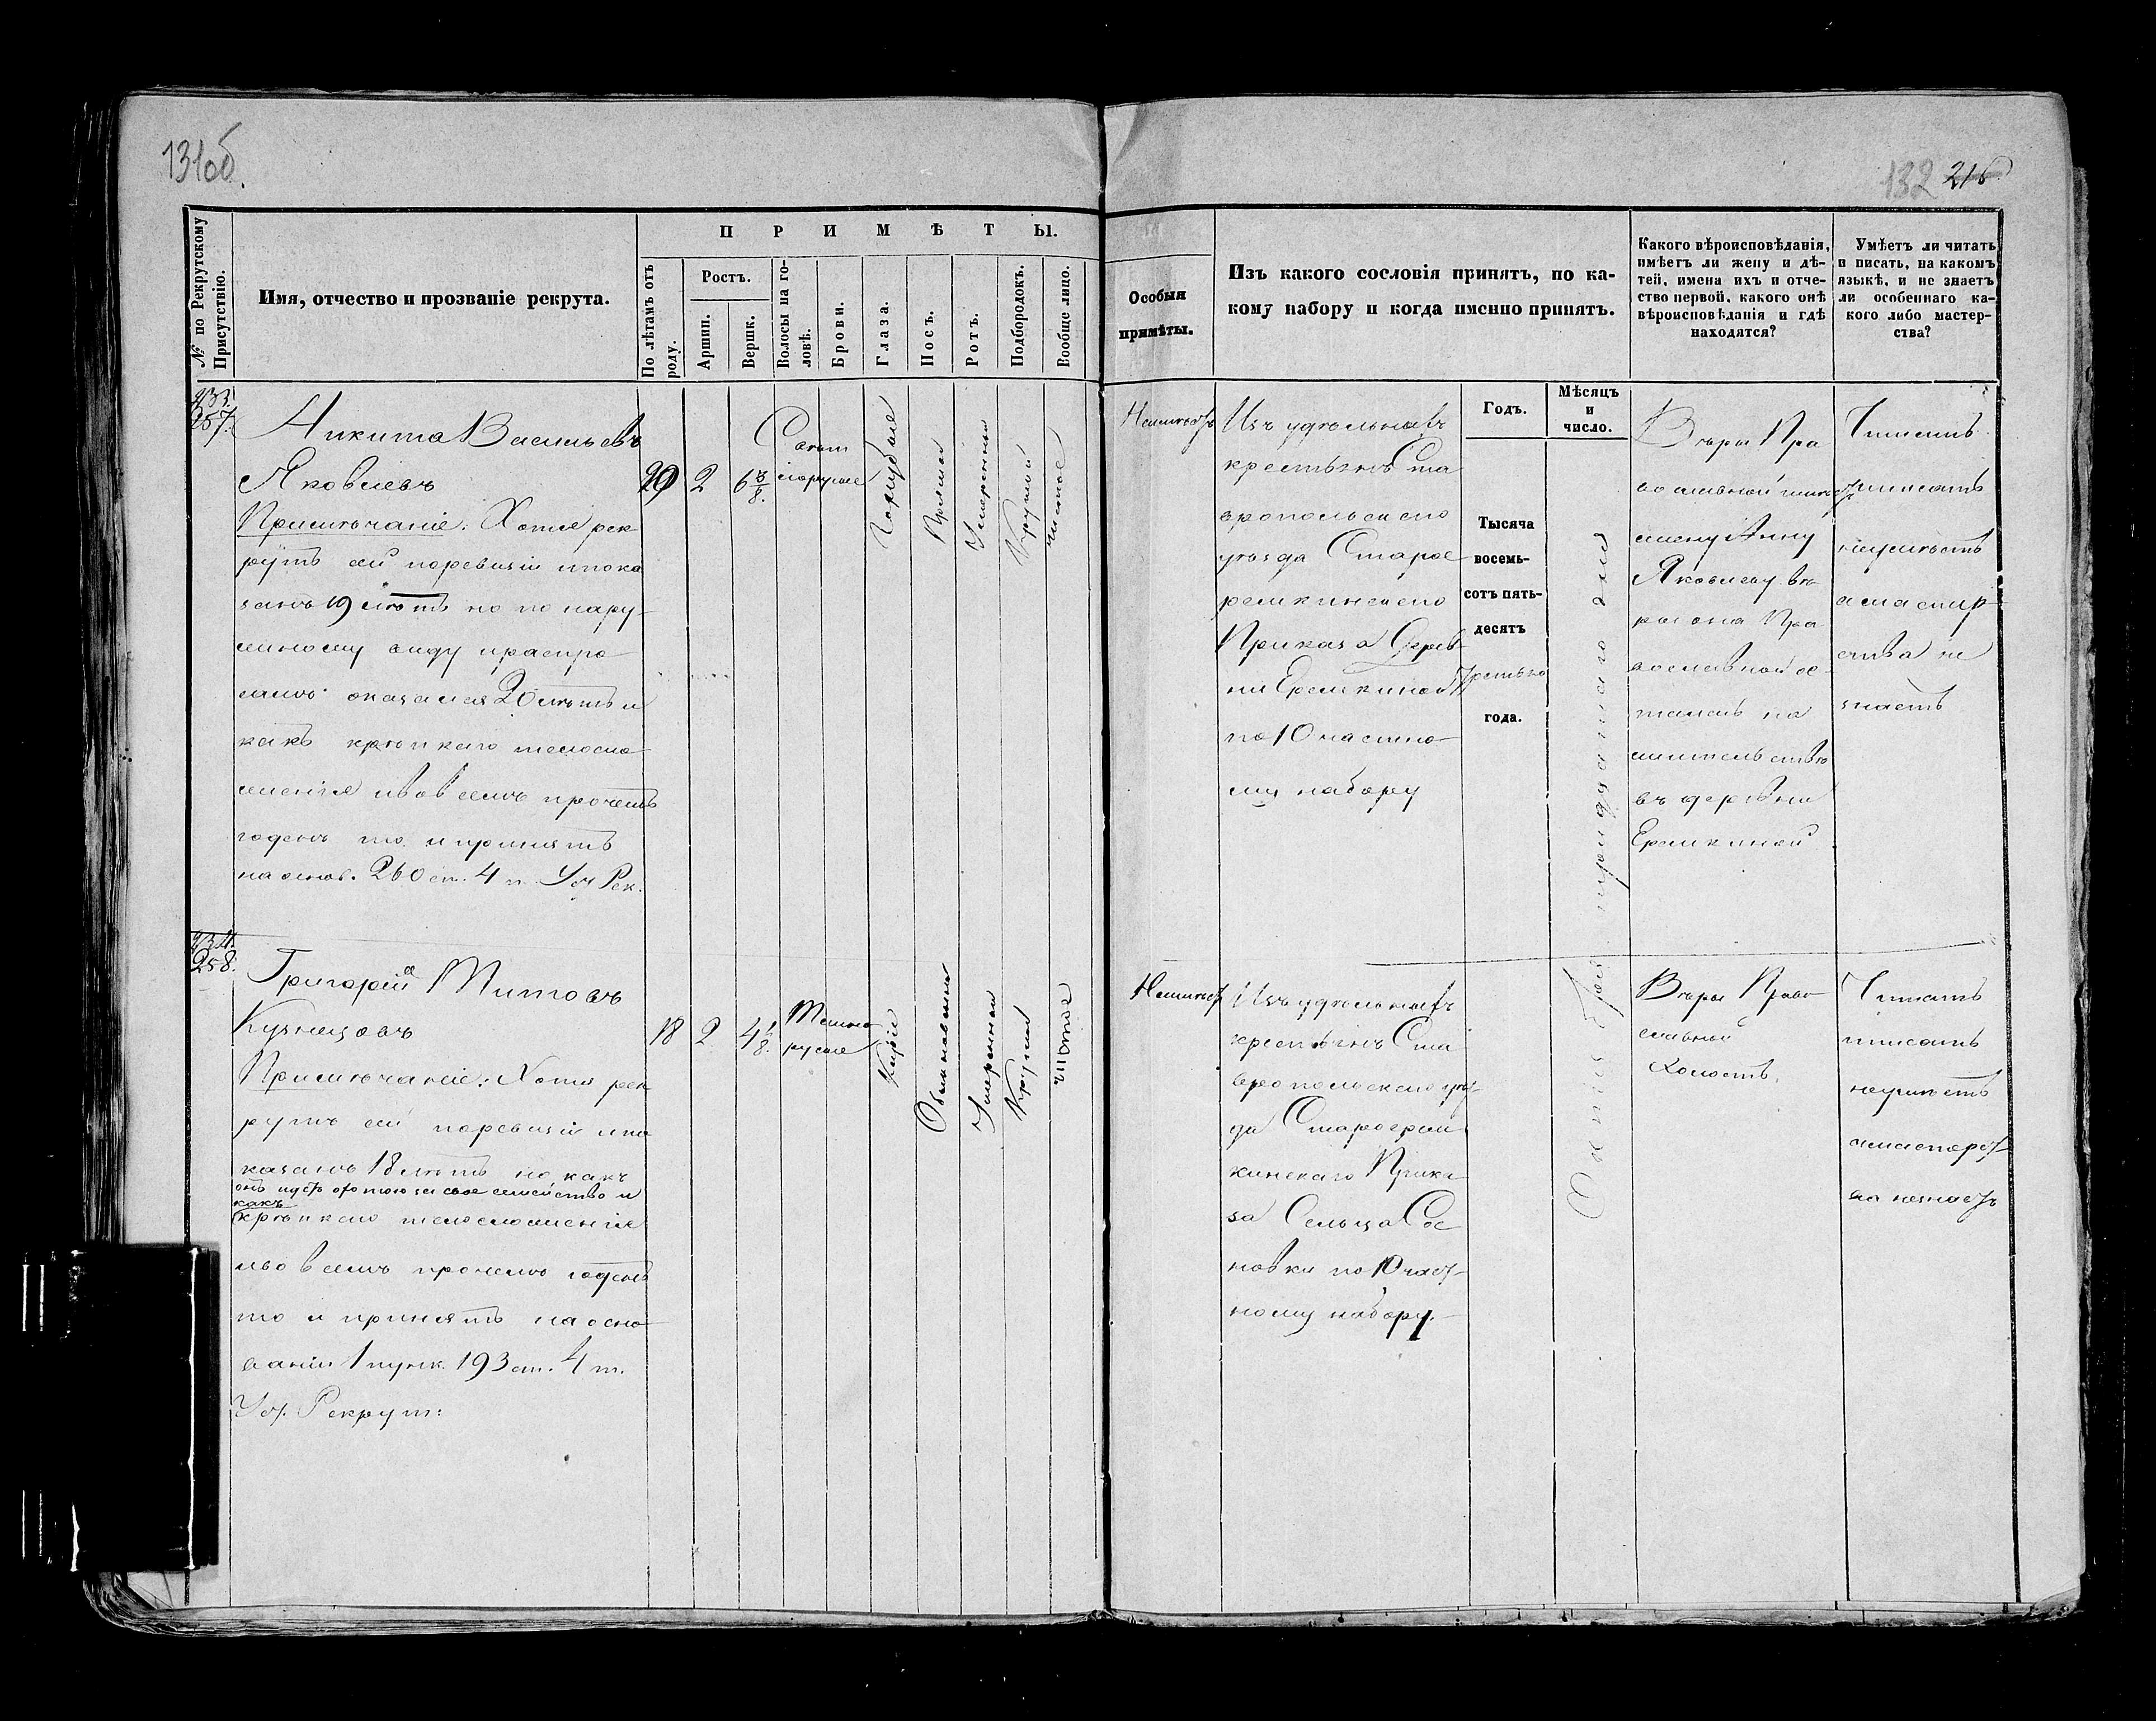 131об.
132 216
№ по Рекрутскому Присутствію.
Имя, отчество и прозваніе рекрута.
П Р И М Ѣ Т Ы.
По лѣтамъ отъ роду.
Ростъ.
Аршин.
Вершк.
Волосы на головѣ.
Брови.
Глаза.
Носъ.
Ротъ.
Подбородокъ.
Вообще лицо.
Особыя
примѣты.
Изъ какого сословія принятъ, по ка-
кому набору и когда именно принятъ.
Какого вѣроисповѣданія,
имѣетъ ли жену и дѣ-
тей, имена ихъ и отче-
ство первой, какого онѣ
вѣроисповѣданія и гдѣ
находятся?
Умѣетъ ли читать
и писать, на какомъ
языкѣ, и не знаетъ
ли особеннаго ка-
кого либо мастер-
ства?
433.
257.
Никита Васильевъ
Яковлевъ
Примѣчаніе: Хотя рек-
рутъ сей поревизіи ипока
занъ 19 лѣтъ но по нару-
жному виду ираспро
самъ оказался 20 лѣтъ и
какъ крѣпкаго тѣлосло-
женія ивовсемъ прочемъ
годенъ то и принятъ
на основ. 260 ст. 4 т. Уст Рек.
2
6 3/8.
Свѣтлорусые
Голубые
Прямой
Умеренный
Круглый
Чистое
Неимѣетъ
Изъ удѣльныхъ
крестьянъ Ста
вропольскаго
уѣзда Старое
ремкинскаго
Приказа Дерев-
ни Еремкиной
по 10 частно-
му набору
Годъ.
Мѣсяцъ
и
число.
Тысяча
восемь-
сотъ пять-
десятъ
третьяго
года.
тридцатаго дня
Вѣры Пра
вославной имѣетъ
жену Анну
Яковлеву вѣ-
ры она Пра
вославной ос-
талась на
жительствѣ
въ деревни
Еремкиной
Читать
иписать
неумѣетъ
а мастер-
ства не
знаетъ
434.
258.
Григорій Титовъ
Кузнецовъ
Примѣчаніе: Хотя рек
рутъ сей поревизіи ипо
казанъ 18 лѣтъ но какъ
онъ идетъ охотою за свое семейство и
какъ
крѣпкаго тѣлосложенія
ивовсемъ прочемъ годенъ
то и принятъ на осно-
ваніи 1 пунк. 193 ст. 4 т.
Уст. Рекрут:
18
2
4 1/8.
Темно
русые
Каріе
Обыкновенный
Умеренный
Круглый
Чистое
Неимѣетъ
Изъ удѣльныхъ
крестьянъ Ста
вропольскаго уѣз-
да Староерем
кинскаго Прика
за Сельца Сос
новки по 10 част-
ному набору.
Вѣры Право
славной
Холостъ.
Читать
иписать
неумѣетъ
амастерст-
ва незнаетъ